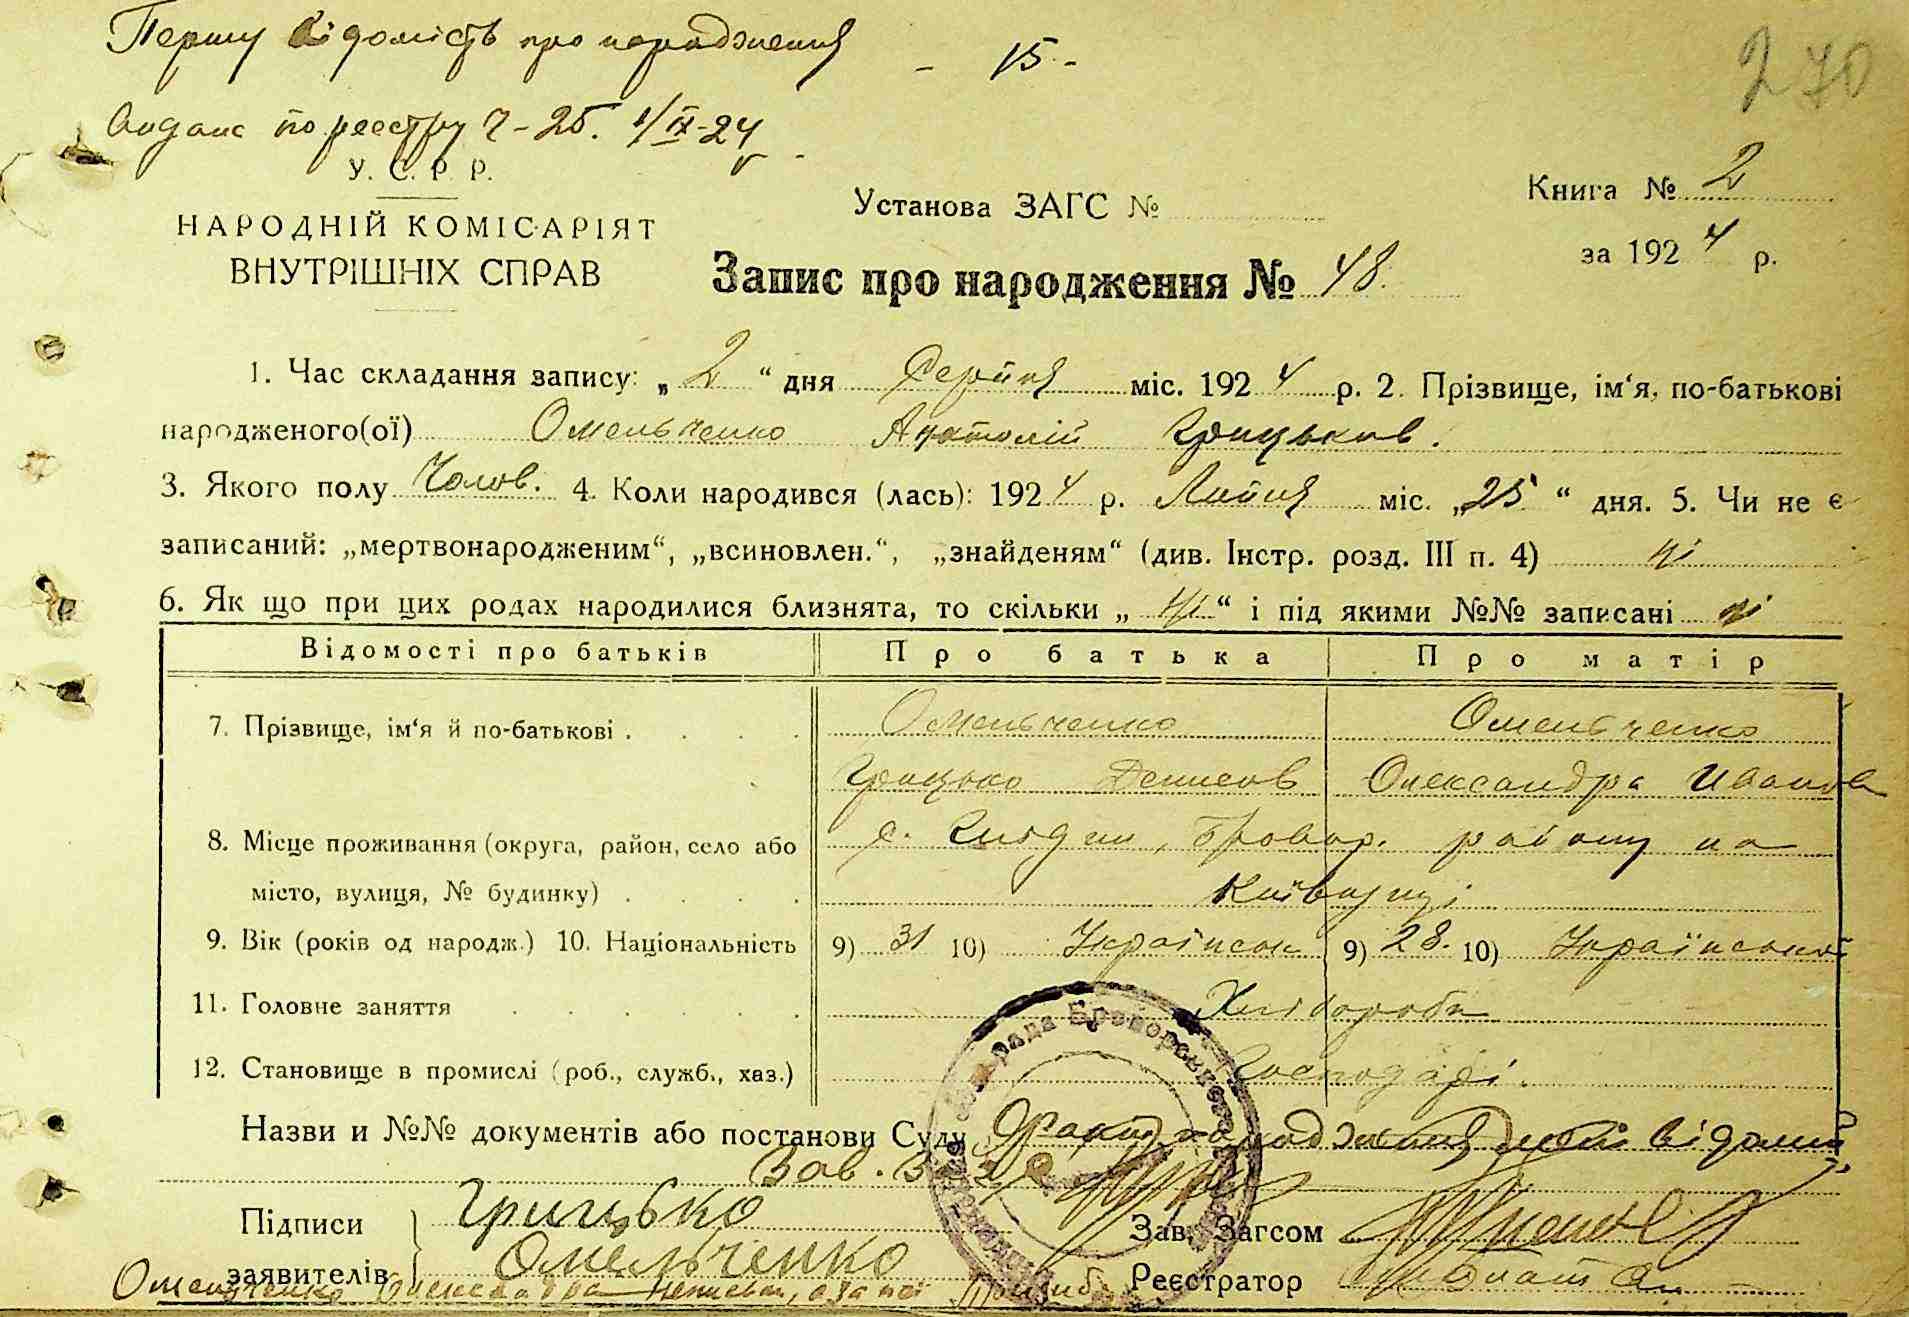 Першу відомість про народження - 15 -
270
видано по реєстру Ч-25. 1/IX-24
У. С. Р. Р.
НАРОДНІЙ КОМІСАРІЯТ
ВНУТРІШНІХ СПРАВ
Установа ЗАГС №
Книга № 2
за 1924 р.
Запис про народження № 48.
1. Час складання запису: „2“ дня Серпня міс. 1924 р. 2. Прізвище, ім‘я, по-батькові
народженого(ої) Омельченко Анатолій Грицьков.
3. Якого полу Чолов. 4. Коли народився (лась): 1924 р. Липня міс. „25“ дня. 5. Чи не є
записаний: „мертвонародженим“, „всиновлен.“, „знайденям“ (див. Інстр. розд. III п. 4) ні
6. Як що при цих родах народилися близнята, то скільки „ні“ і під якими №№ записані ні
Відомості про батьків Про батька Про матір
7. Прізвище, ім‘я й по-батькові . . . . Омельченко Омельченко
Грицько Денисов Олександра Иванов
8. Місце проживання (округа, район, село або с. Бровар. району на
місто, вулиця, № будинку) . . . . Київщині
9. Вік (років од народж.) 10. Національність 9) 31 10) Українськ 9) 28. 10) Української
11. Головне заняття . . . . . . Хлібороби
12. Становище в промислі (роб., служб., хаз.) Господарі.
Назви и №№ документів або постанови Суду Факт народження мені відомий
Зав.
Підписи Грицько Зав. Загсом
заявителів Омельченко Реєстратор
Омельченко Олександра неписьм., а за неї